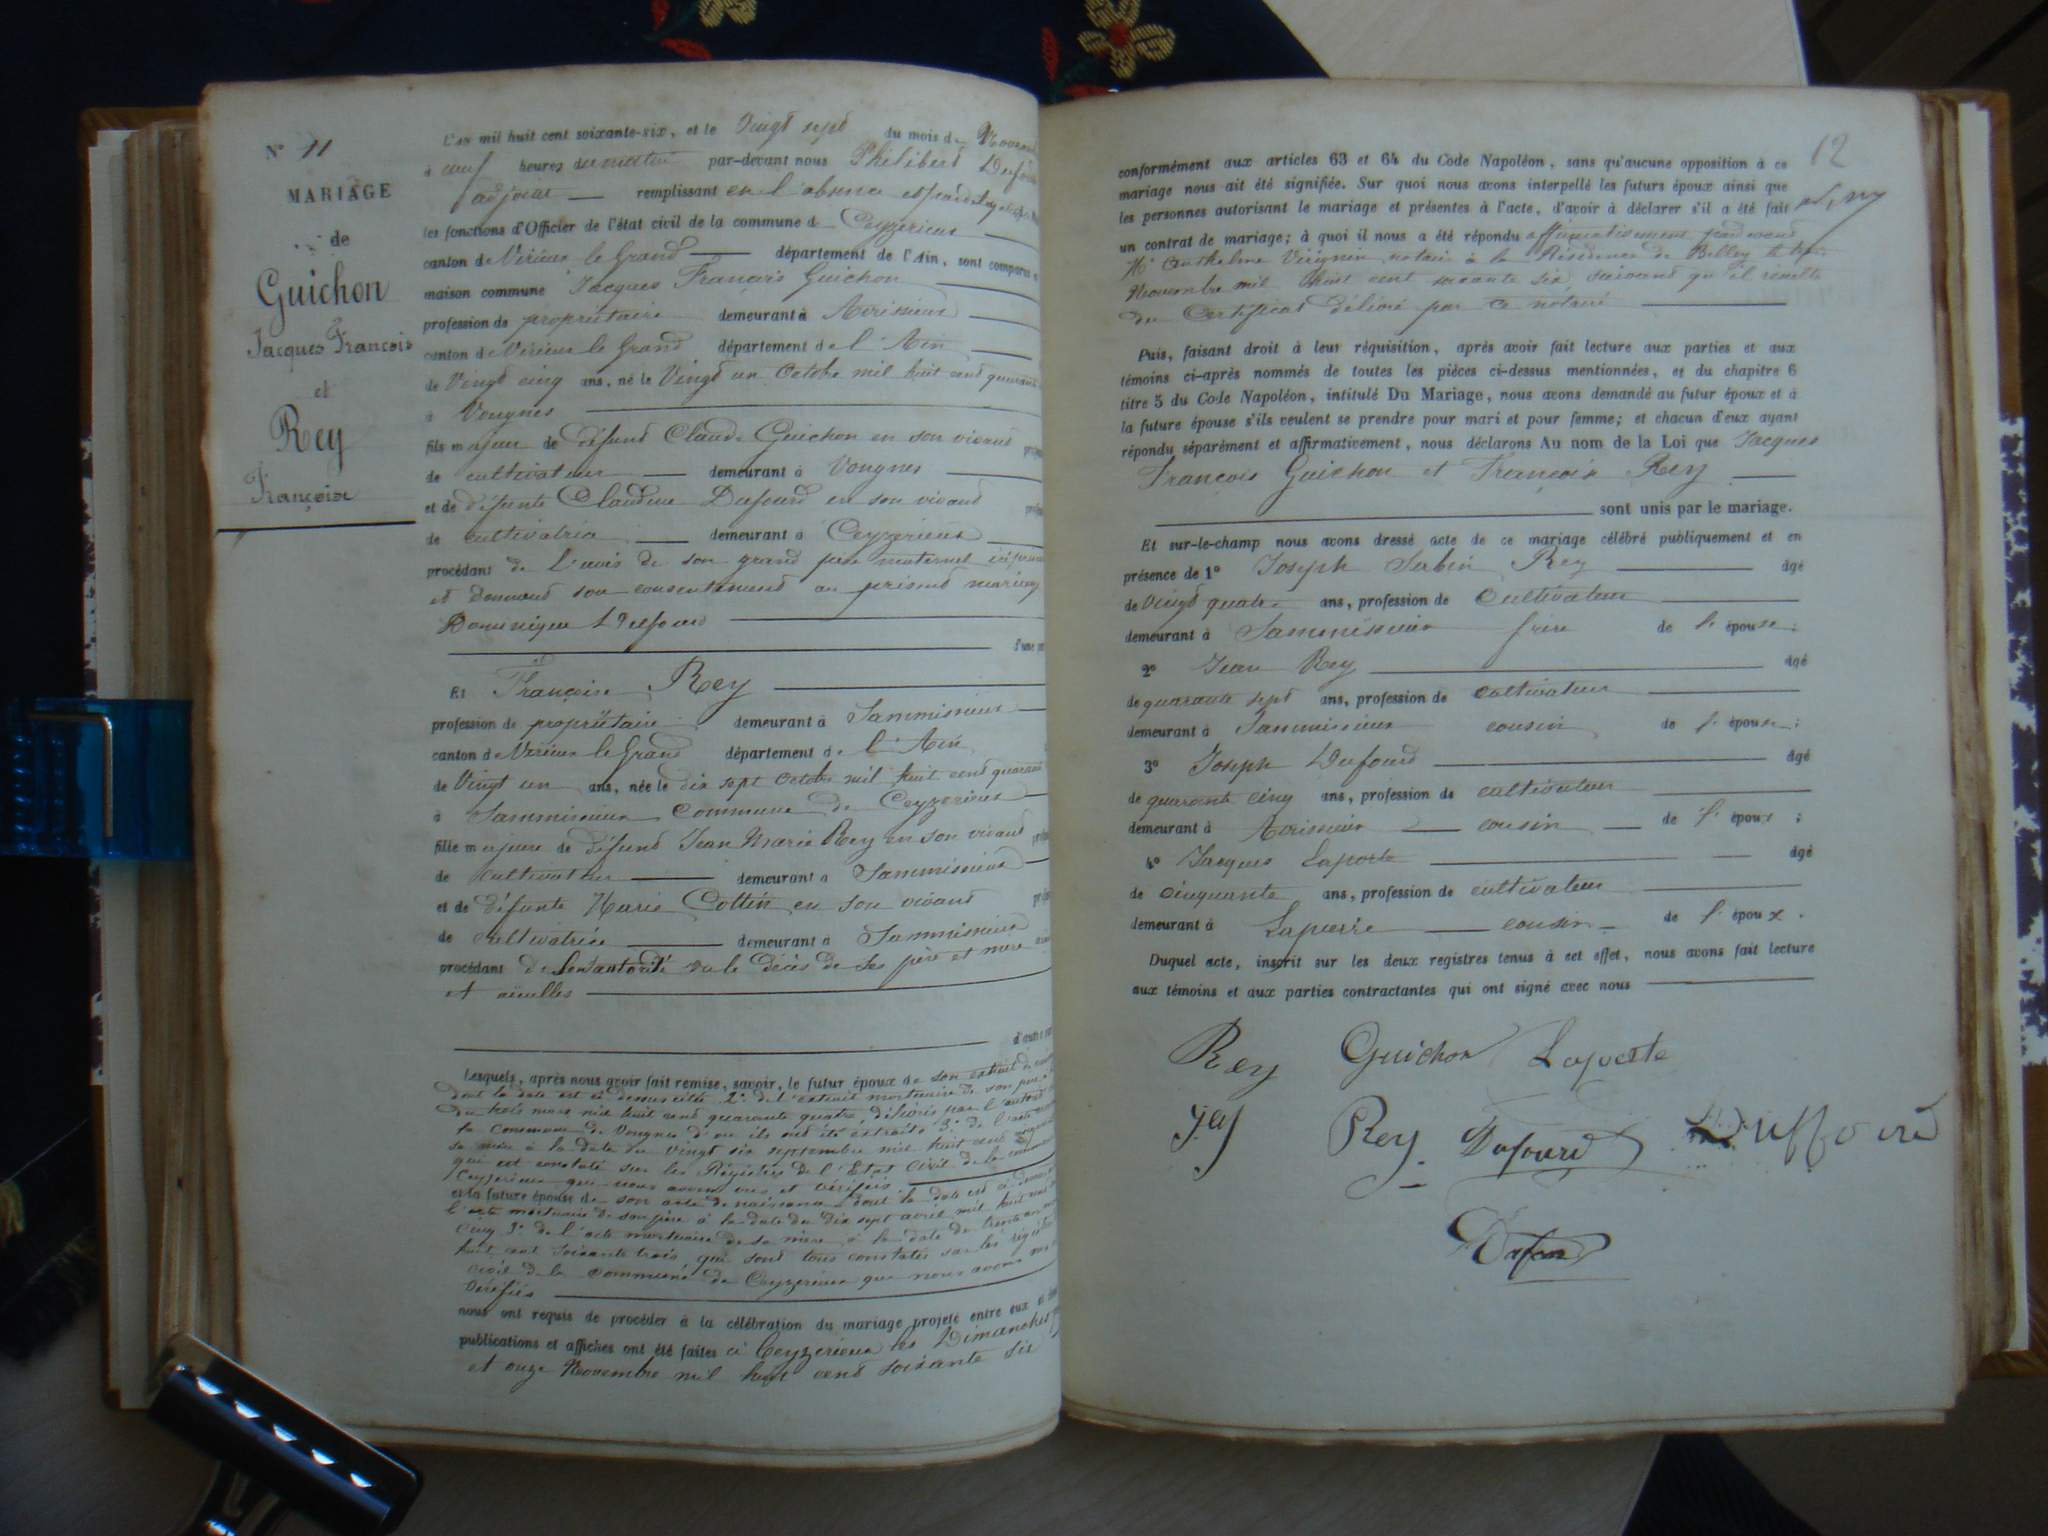 N° 11
MARIAGE
de
Guichon
Jacques François
et
Rey
Françoise
L'an mil huit cent soixante-six, et le Vingt sept du mois de
à neuf heures du matin par-devant nous Philibert
adjoint remplissant en l'absence
les fonctions d'Officier de l'état civil de la commune de Ceyzerieu
canton de Virieu le Grand département de l'Ain, sont comparus
maison commune Jacques François Guichon
profession de propriétaire demeurant à
canton de Virieu le Grand département de l'Ain
de Vingt cinq ans, né le Vingt un Octobre mil huit cent
à Vongnes
fils majeur de défunt Claude Guichon en son vivant
de cultivateur demeurant à Vongnes
et de défunte Claudine Dufourd en son vivant
de cultivatrice demeurant à Ceyzerieu
procédant de l'avis de son grand père maternel
et donnant son consentement au présent mariage
Dominique Dufourd
d'une
Et Françoise Rey
profession de propriétaire demeurant à Sammissieu
canton de Virieu le Grand département de l'Ain
de Vingt un ans, née le dix sept Octobre mil huit cent
à Sammissieu commune de Ceyzerieu
fille majeure de défunt Jean Marie Rey en son vivant
de cultivateur demeurant à Sammissieu
et de défunte Marie Cottin en son vivant
de cultivatrice demeurant à Sammissieu
procédant de son autorité vu le décès de ses père et mère
et aïeulles
d'autre
Lesquels, après nous avoir fait remise, savoir, le futur époux de son extrait de
dont la date est ci dessus citée 2° de l'extrait mortuaire de son père
du trois mars mil huit cent quarante quatre, délivrés par l'autorité
la commune de Vongnes d'où ils ont été extraits 3° de l'acte
sa mère à la date du vingt six septembre mil huit cent
qui est constaté sur les Régistres de l'Etat Civil de la commune
Ceyzerieu que nous avons vus et vérifiés
et la future épouse de son acte de naissance dont la date est ci dessus
l'acte mortuaire de son père à la date du dix sept avril mil huit cent
cinq 3° de l'acte mortuaire de sa mère à la date du trente
huit cent soixante trois qui sont tous constatés sur les régistres
civil de la commune de Ceyzerieu que nous avons
vérifiés
nous ont requis de procéder à la célébration du mariage projeté entre eux et
publications et affiches ont été faites à Ceyzerieu les Dimanches
et onze Novembre mil huit cent soixante six
12
conformément aux articles 63 et 64 du Code Napoléon, sans qu'aucune opposition à ce
mariage nous ait été signifiée. Sur quoi nous avons interpellé les futurs époux ainsi que
les personnes autorisant le mariage et présentes à l'acte, d'avoir à déclarer s'il a été fait
un contrat de mariage; à quoi il nous a été répondu affirmativement pardevant
Me Anthelme notaire à la Résidence de Belley le
Novembre mil huit cent soixante six, suivant qu'il résulte
du Certificat délivré par ce notaire
Puis, faisant droit à leur réquisition, après avoir fait lecture aux parties et aux
témoins ci-après nommés de toutes les pièces ci-dessus mentionnées, et du chapitre 6
titre 5 du Code Napoléon, intitulé Du Mariage, nous avons demandé au futur époux et à
la future épouse s'ils veulent se prendre pour mari et pour femme; et chacun d'eux ayant
répondu séparément et affirmativement, nous déclarons Au nom de la Loi que Jacques
François Guichon et Françoise Rey
sont unis par le mariage.
Et sur-le-champ nous avons dressé acte de ce mariage célébré publiquement et en
présence de 1° Joseph Rey âgé
de Vingt quatre ans, profession de Cultivateur
demeurant à Sammissieu frère de l'épouse;
2° Jean Rey âgé
de quarante sept ans, profession de cultivateur
demeurant à Sammissieu cousin de l'épouse;
3° Joseph Dufourd âgé
de quarante cinq ans, profession de cultivateur
demeurant à cousin de l'époux;
4° Jacques Laporte âgé
de cinquante ans, profession de cultivateur
demeurant à cousin de l'époux.
Duquel acte, inscrit sur les deux registres tenus à cet effet, nous avons fait lecture
aux témoins et aux parties contractantes qui ont signé avec nous
Rey Guichon Laporte
Rey Dufourd Duffourd